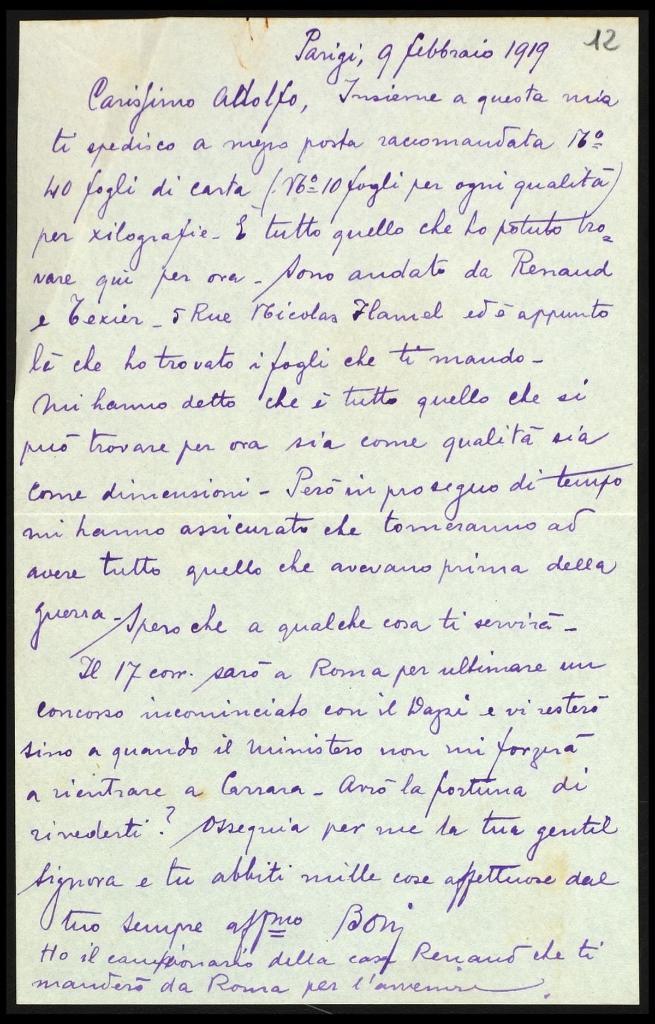 12
Parigi, 9 febbraio 1919
Carissimo Adolfo, Insieme a questa mia
ti spedisco a mezzo posta raccomandata No
40 fogli di carta (No 10 fogli per ogni qualità)
per xilografie - E tutto quello che ho potuto tro=
vare qui per ora - Sono andato da Renaud
e Texier - 5 Rue Nicolas Flamel ed è appunto
là che ho trovato i fogli che ti mando -
Mi hanno detto che è tutto quello che si
può trovare per ora sia come qualità sia
come dimensioni - Però in proseguo di tempo
mi hanno assicurato che torneranno ad
avere tutto quello che avevano prima della
guerra - Spero che a qualche cosa ti servirà -
Il 17 corr. sarò a Roma per ultimare un
concorso incominciato con il Dazzi e vi resterò
sino a quando il Ministero non mi forzerà
a rientrare a Carrara - Avrò la fortuna di
rivederti? Ossequia per me la tua gentil
Signora e tu abbiti mille cose affettuose dal
tuo sempre affmo Boni
Ho il campionario della casa Renaud che ti
manderò da Roma per l'avvenire.